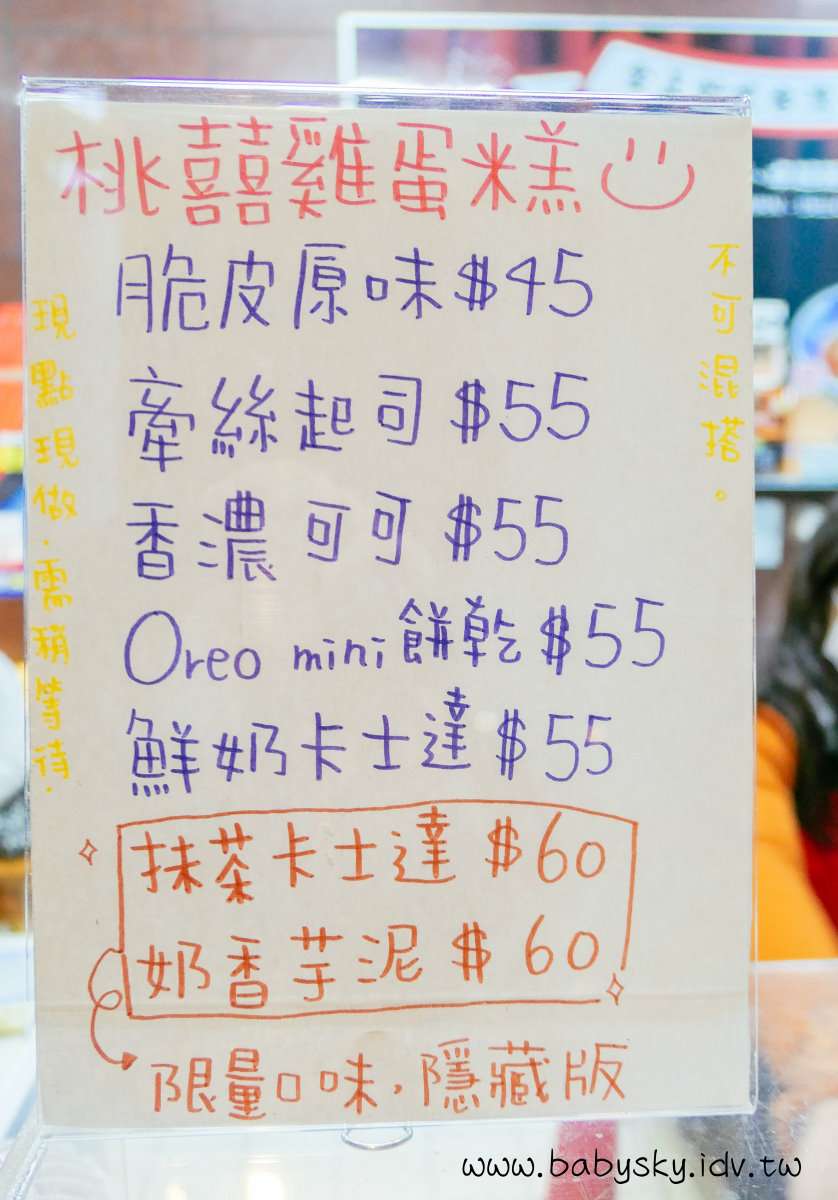 桃囍雞蛋糕
脆皮原味$45
牽絲起司$55
香濃可可$55
Oreo mini餅乾$55
鮮奶卡士達$55
抹茶卡士達$60
奶香芋泥$60
限量口味,隱藏版
現點現做.需稍等待.
不可混搭。
www.babysky.idv.tw